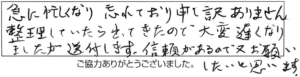 急に忙しくなり 忘れており申し訳ありません
整理していたら出てきたので大変遅くなり
ましたが送付します。信頼があるので又お願い
したいと思います
ご協力ありがとうございました。